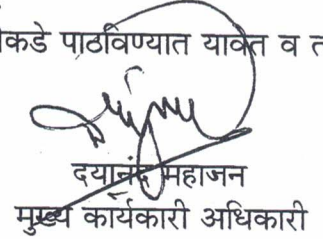 कडे पाठविण्यात यावेत व त
दयानंद महाजन
मुख्य कार्यकारी अधिकारी